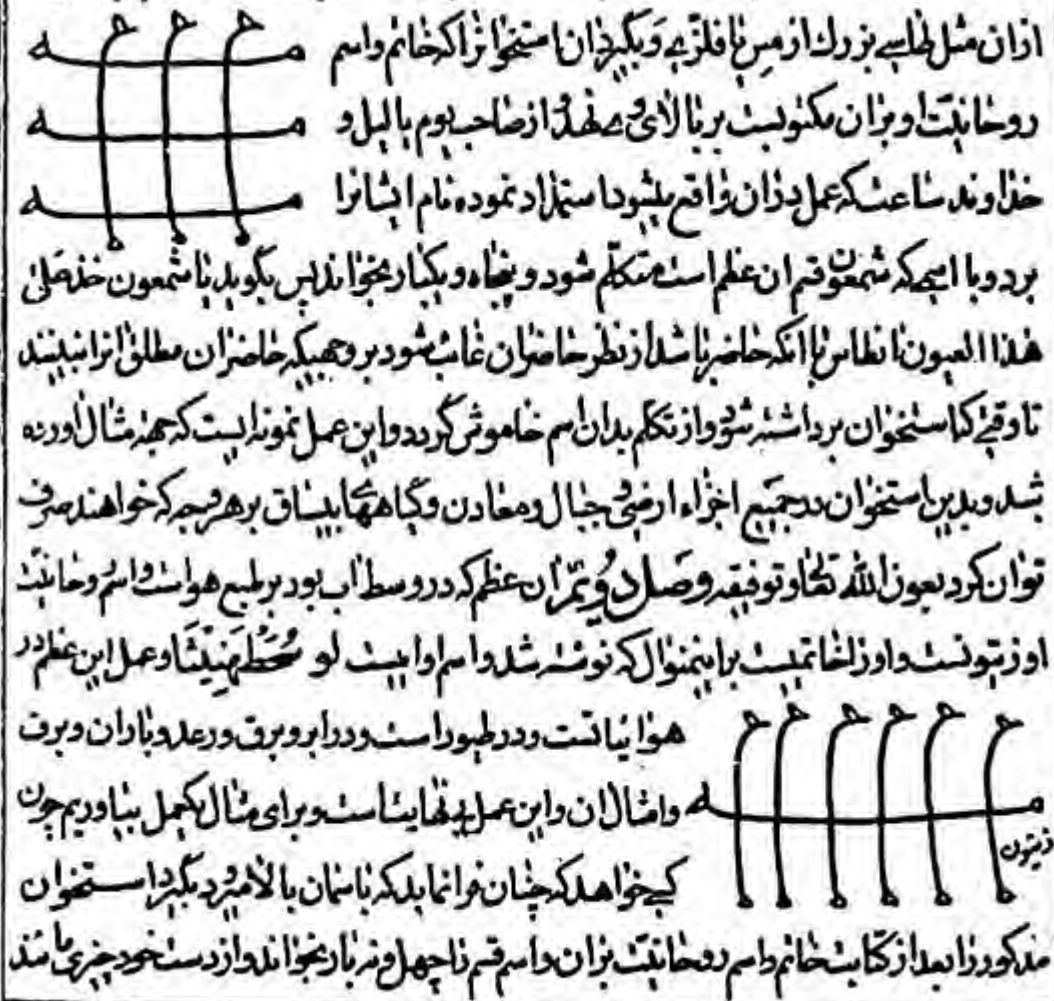 ازان مثل طاسی بزرك از مس یا فلزی و بگیرد ان استخوانرا که خاتم واسم
روحانیّت او بران مکتوبست بر بالای وی نهد از صاحب یوم یا لیل و
خداوند ساعت که عمل دران واقع میشود استمداد نموده نام ایشانرا
برد و با اسمی که شمعون قسم ان عظم است متکلّم شود و پنجاه و یکبار بخواند پس بگوید یا شمعون خذ علی
هذا العیون تا نظاس با انکه حاضر باشد از نظر حاضران غائب شود بر وجهیکه حاضران مطلق انرا نبینند
تا وقتی که استخوان برداشته شود و از تکلم بدان اسم خاموش گردد و این عمل نمونه ایست که جهة مثال اورده
شد و بدین استخوان در جمیع اجزاء ارضی و جبال و معادن و گیاههای بیساق بر هر وجه که خواهند صرف
توان کرد بعون الله تعالی و توفیقه وصل دویّم ان عظم که در وسط اب بود بر طبع هواست واسم روحانیّت
او زیتونست و او را خاتمیست براینمنوال که نوشته شد واسم او اینست لو و عمل این عظم در
هوائیاتست و در طیوراست و در ابر و برق و رعد و باران و برف
و امثال ان و این عمل بینهایتست و برای مثال یکعمل بیاوریم چون
زیتون
کسی خواهد که چنان فرا نماید که باسمان بالا میرود بگیرد استخوان
مذکور را بعد از کتابت خاتم واسم روحانیّت بران واسم قسم تا چهل و نه بار بخواند و از دست خود چیزی مانند